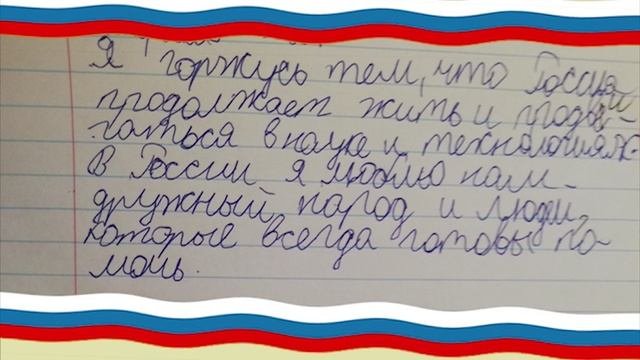 Я горжусь тем, что Россия
продолжает жить и продви-
гаться в науке и технологиях.
В России я люблю наш
дружный народ и люди,
которые всегда готовы по-
мочь.